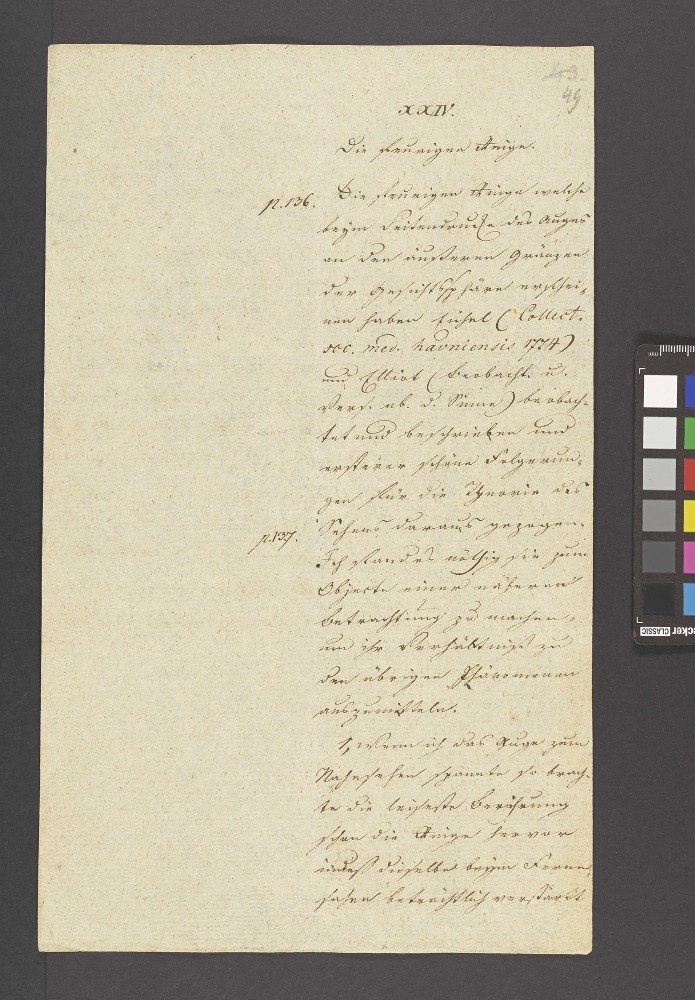 43.
49
XXIV.
Die feurigen Ringe.
p.136. Die feurigen Ringe welche
beym Seitendrucke des Auges
an den äußeren Gränzen
der Gesichtssphäre erschei-
nen haben Eichel (Collect.
soc. med. havniensis 1774)
und Elliot (Beobacht. u.
Vers. üb. d. Sinne) beobach-
tet und beschrieben und
ersterer schöne Folgerun-
gen für die Theorie des
p.137. Sehens daraus gezogen.
Ich fand es nöthig sie zum
Objecte einer näheren
Betrachtung zu machen,
um ihr Verhältniß zu
den übrigen Phänomenen
auszumitteln.
1, Wenn ich das Auge zum
Nahesehen spannte so brach-
te die leiseste Berührung
schon die Ringe hervor
indeß dieselbe beym Ferne
sehen beträchtlich verstärkt